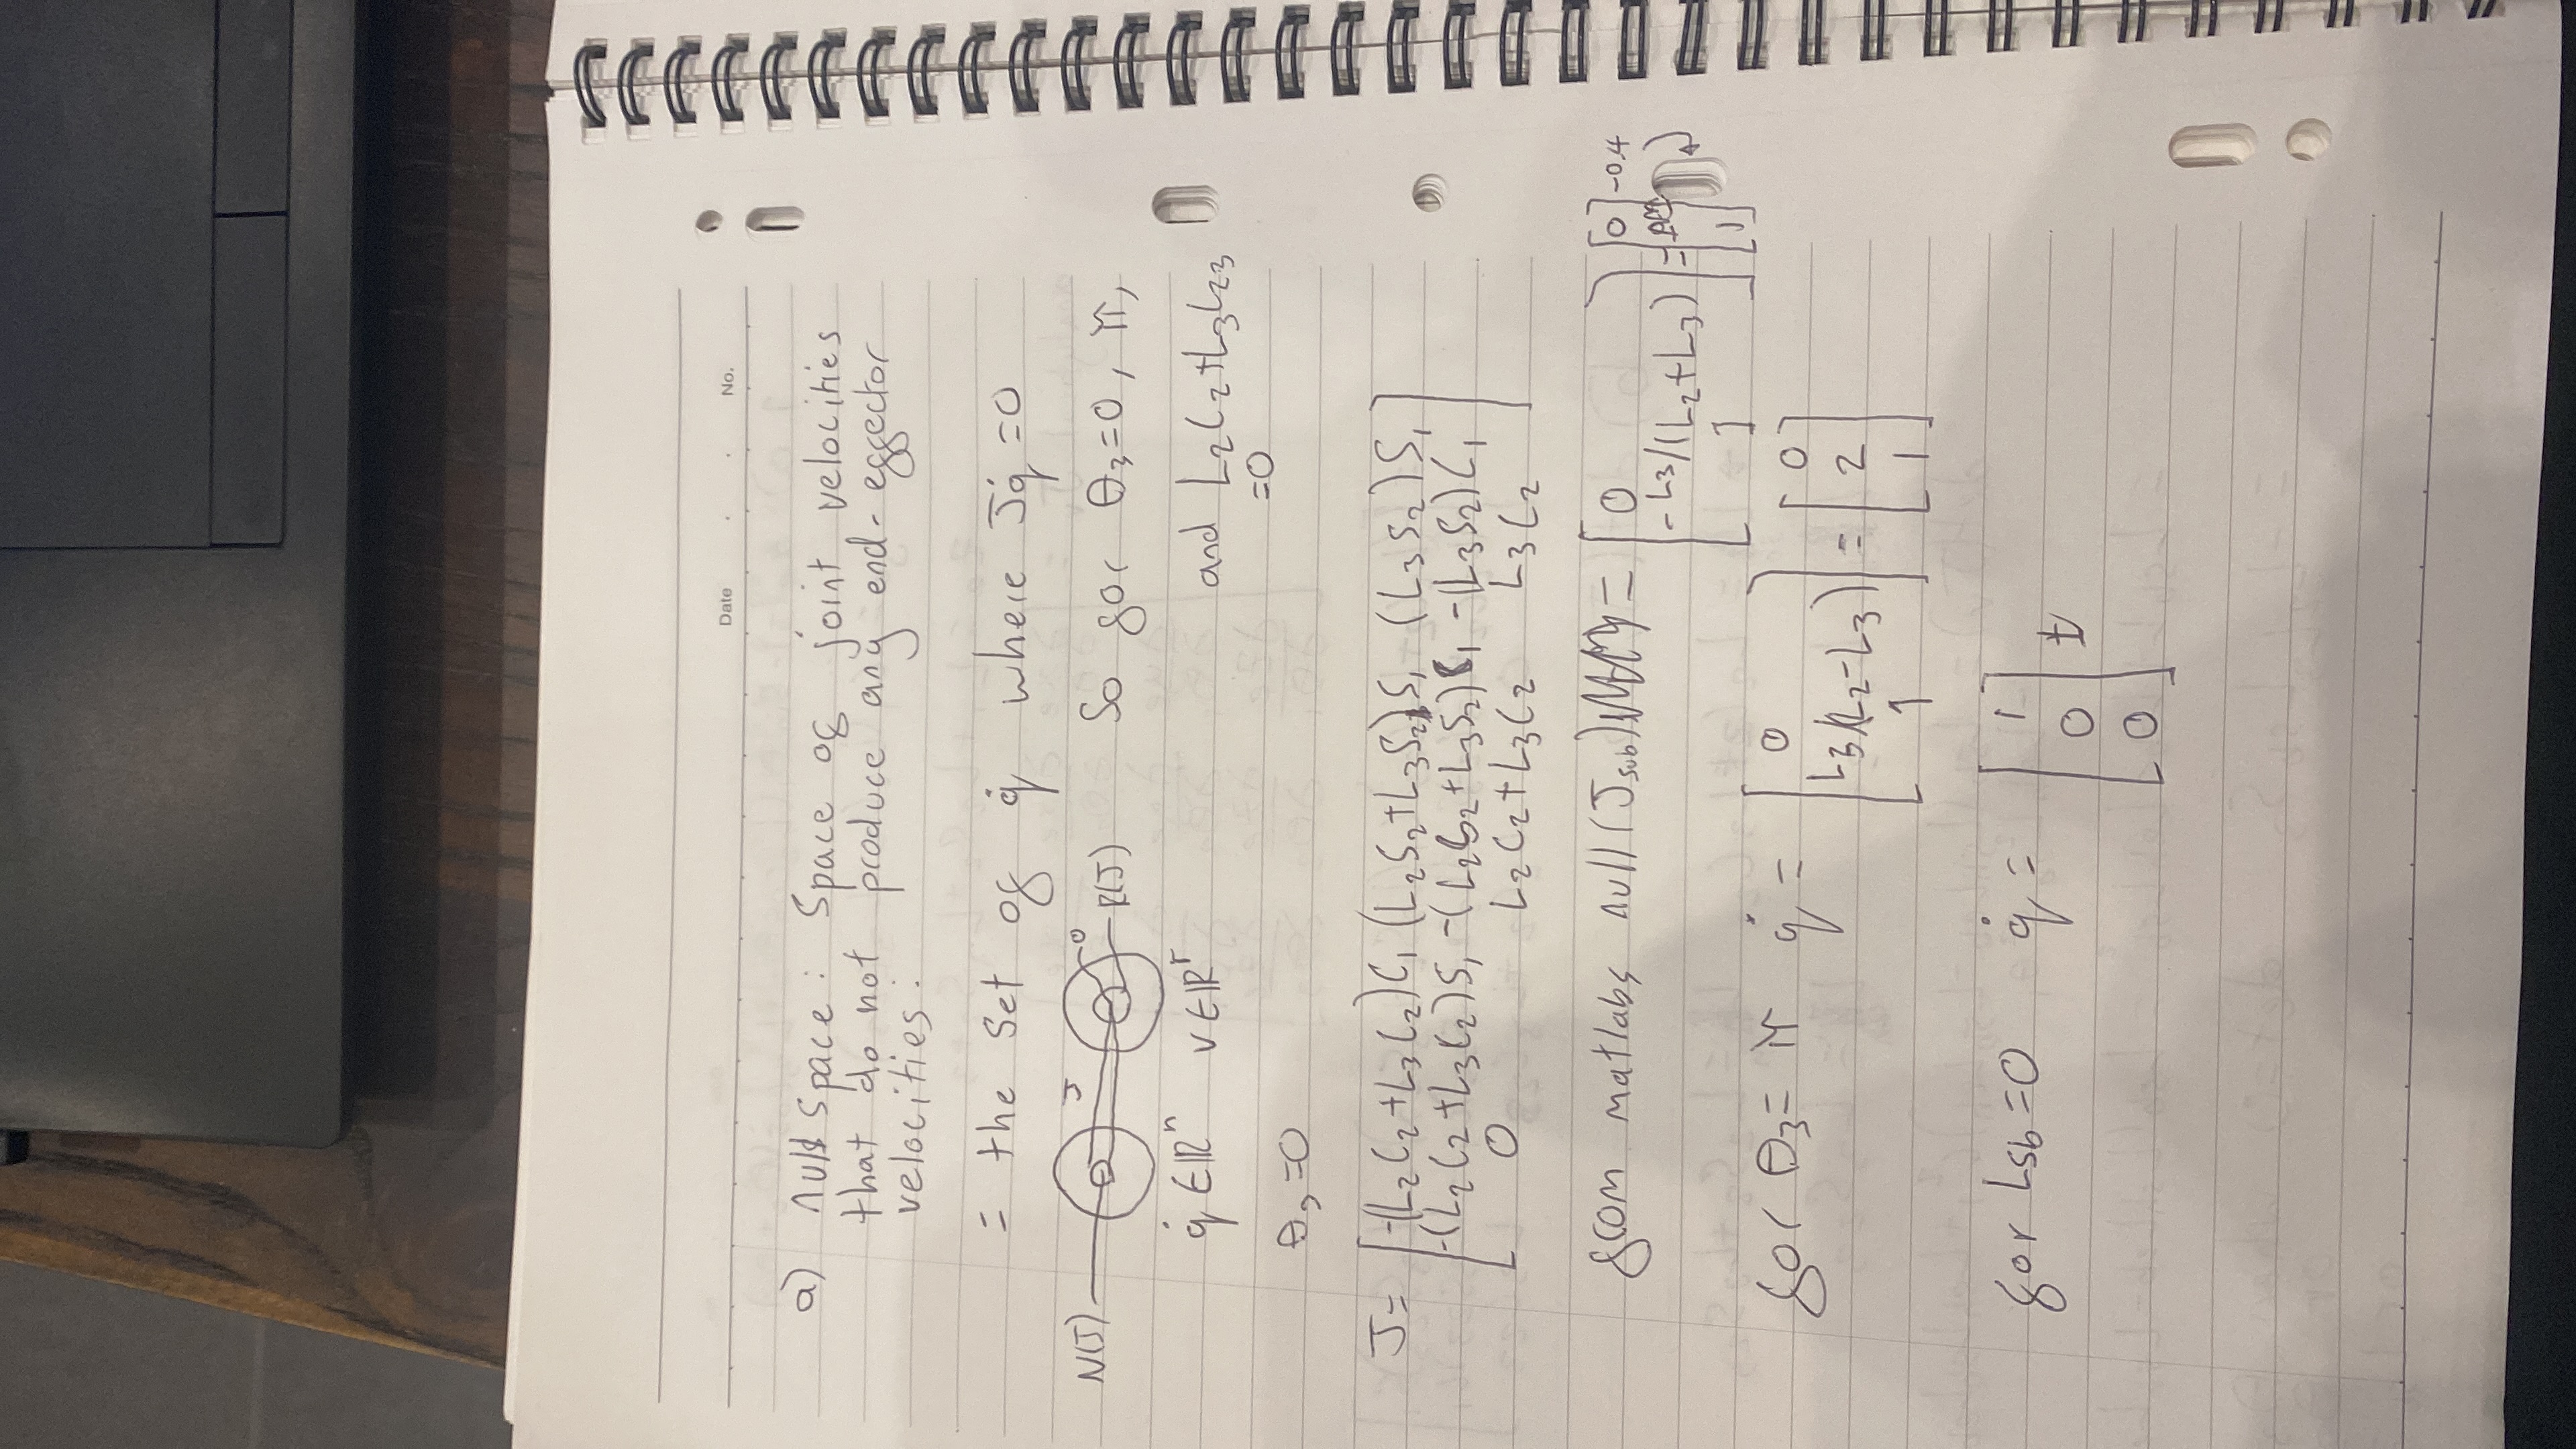 Date . . No.
a) null space : Space of joint velocities
that do not produce any end-effector
velocities :
= the set of q̇ where Jq̇ =0
N(J) J 0 R(J) So for θ₃=0, π,
q̇ ∈ℝⁿ v∈ℝʳ and L₂C₂+L₃C₂₃
=0
θ₃=0
J= [ -(L₂C₂+L₃C₂)C₁ (L₂S₂+L₃S₂)S₁ (L₃S₂)S₁
-(L₂C₂+L₃C₂)S₁ -(L₂S₂+L₃S₂)C₁ -(L₃S₂)C₁
0 L₂C₂+L₃C₂ L₃C₂ ]
from matlabs null(Jsub) = [ 0 -L₃/(L₂+L₃) 1 ] = [ 0 1 ] -0.4
for θ₃= π q̇ = [ 0 L₃/(L₂-L₃) 1 ] = [ 0 2 1 ]
for Lsb=0 q̇ = [ 1 0 0 ] t